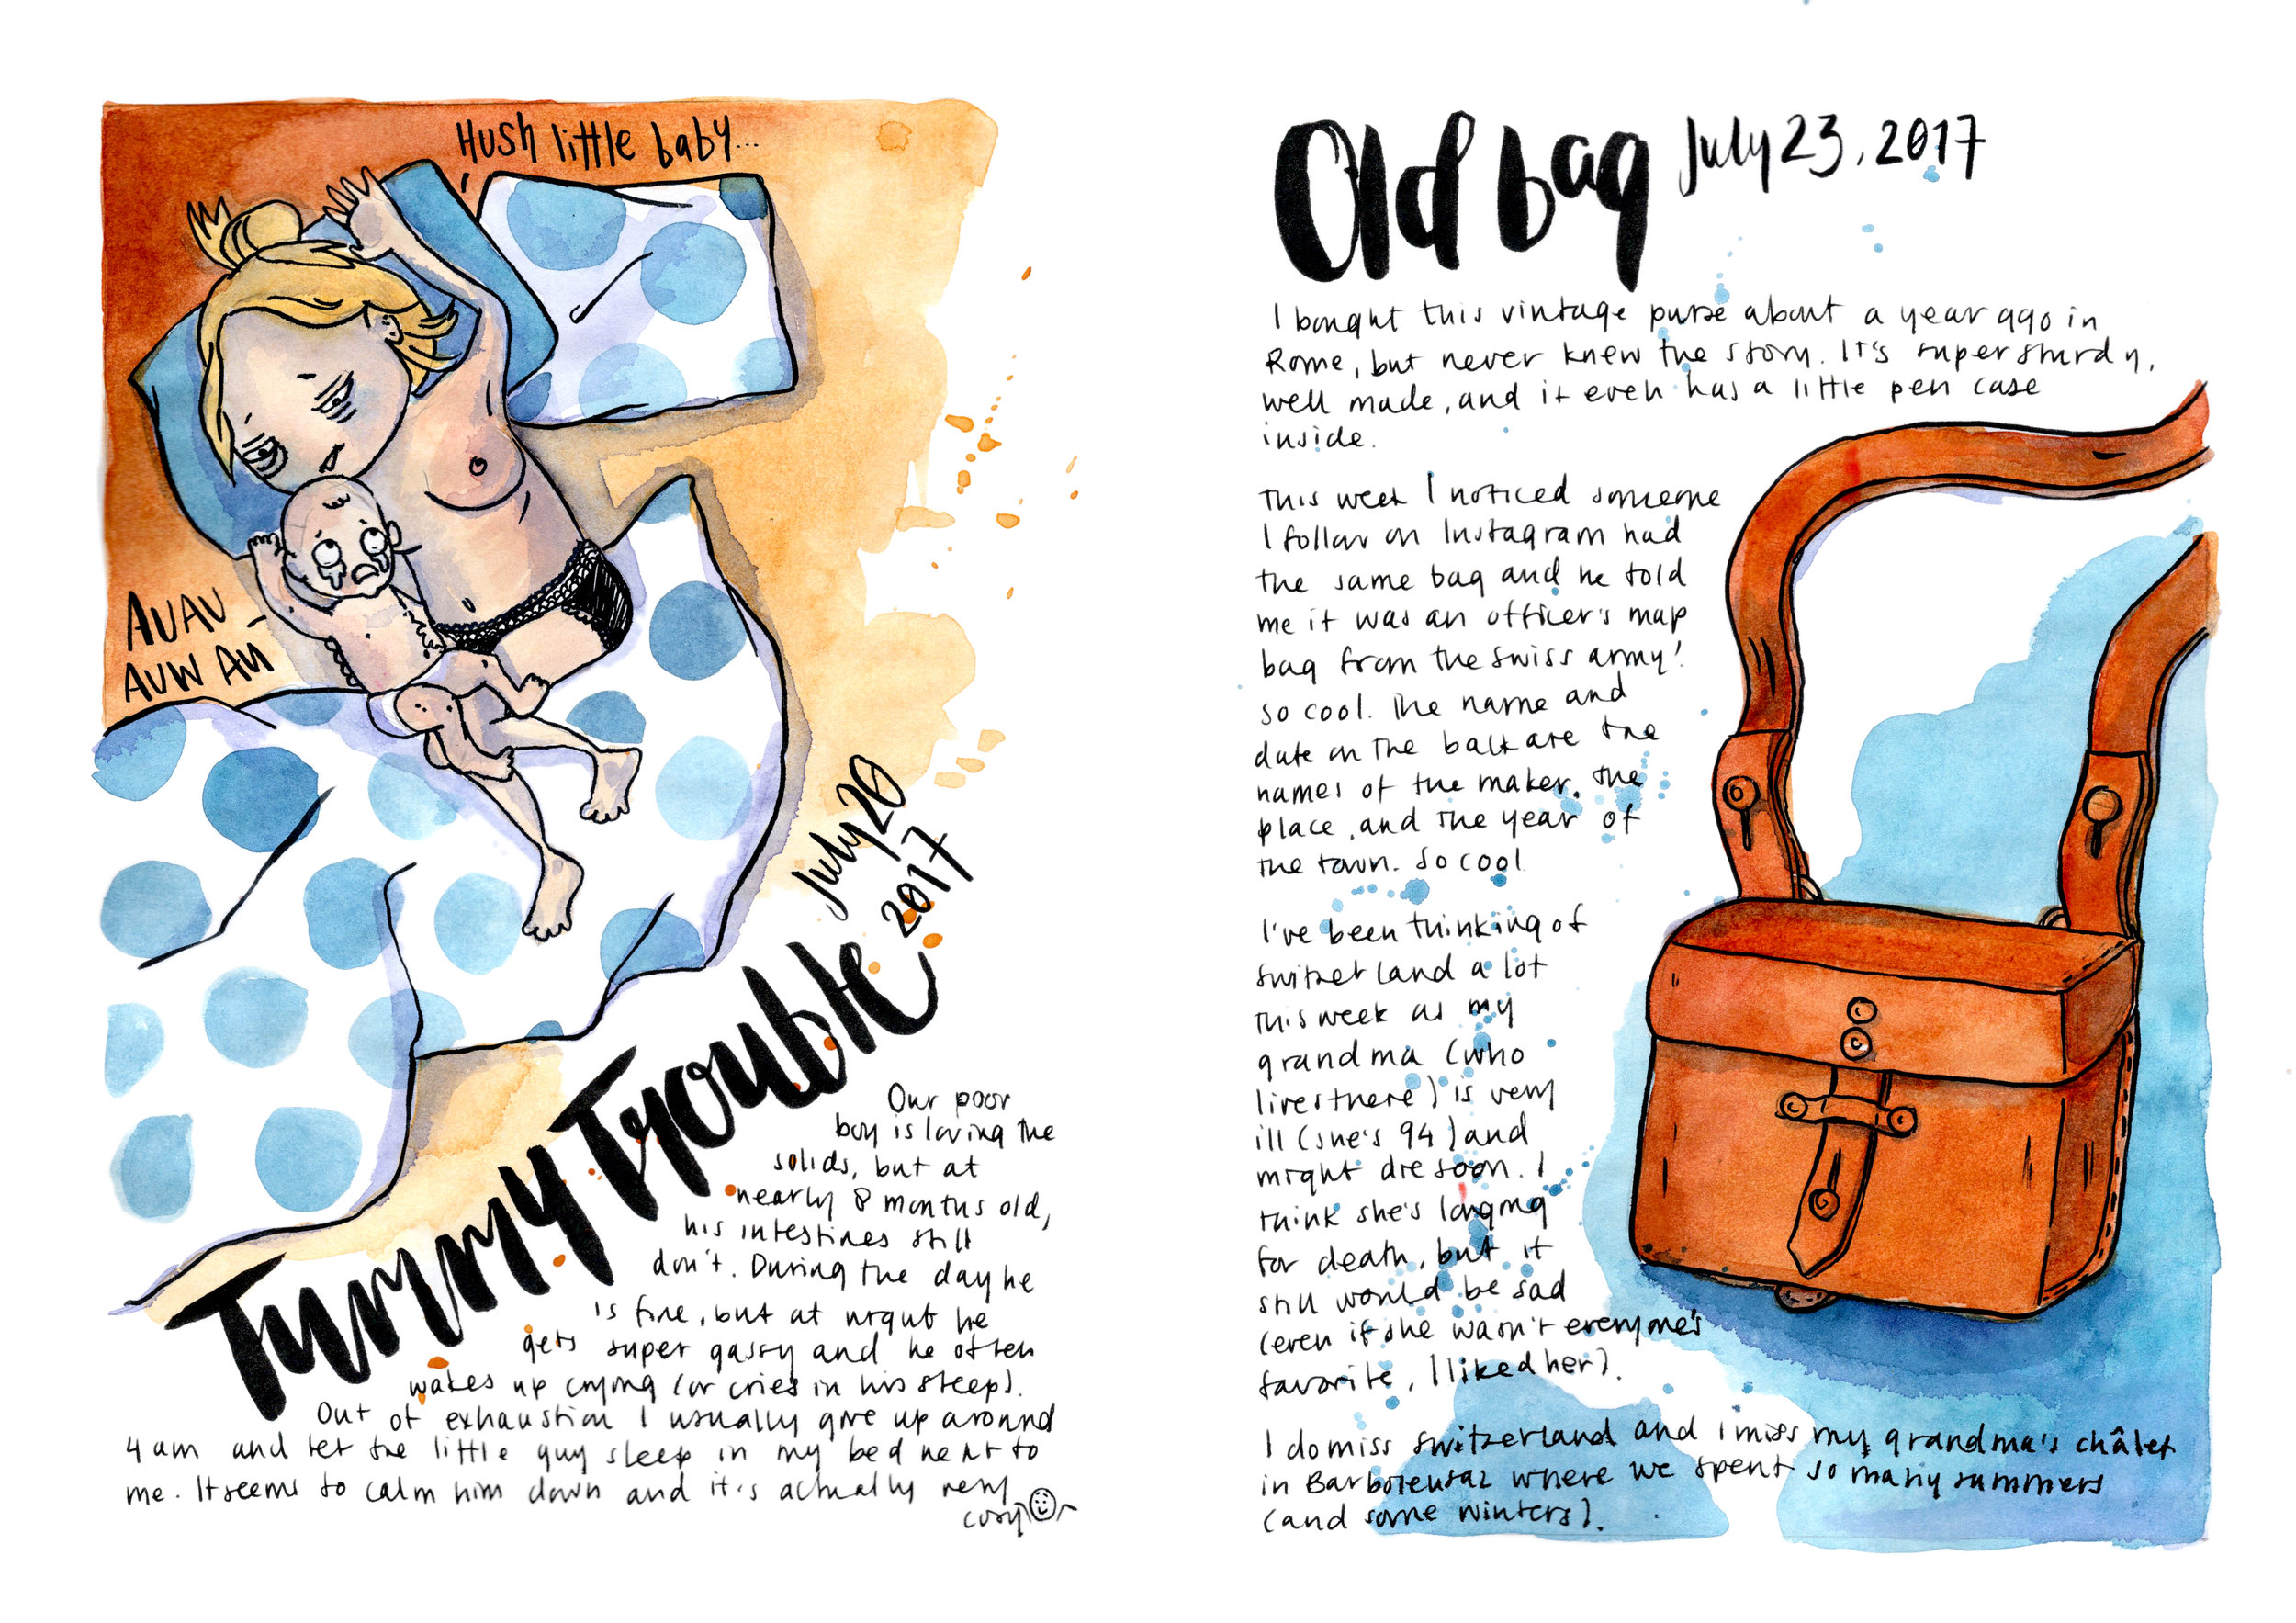 Hush little baby...
AUAU
AUW AU
July 20
2017
Tummy Trouble
Our poor
boy is loving the
solids, but at
nearly 8 months old,
his intestines still
don't. During the day he
is fine, but at night he
gets super gassy and he often
wakes up crying (or cries in his sleep).
Out of exhaustion I usually give up around
4 am and let the little guy sleep in my bed next to
me. It seems to calm him down and it's actually very
cosy
Old bag July 23, 2017
I bought this vintage purse about a year ago in
Rome, but never knew the story. It's super sturdy,
well made, and it even has a little pen case
inside.
This week I noticed someone
I follow on Instagram had
the same bag and he told
me it was an officer's map
bag from the swiss army!
so cool. The name and
date on the back are the
names of the maker, the
place, and the year of
the town. So cool
I've been thinking of
switzerland a lot
this week as my
grandma (who
lives there) is very
ill (she's 94) and
might die soon. I
think she's longing
for death, but it
still would be sad
(even if she wasn't everyone's
favorite, I liked her).
I do miss switzerland and I miss my grandma's châlet
in Barboleusaz where we spent so many summers
(and some winters).